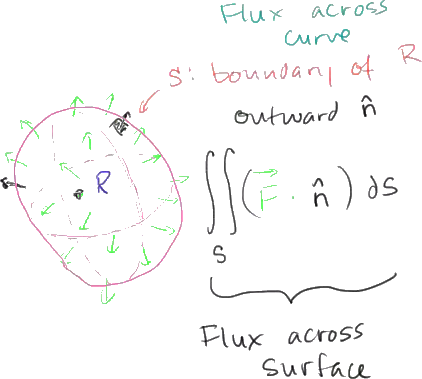 Flux across
curve
S: boundary of R
outward n̂
R
∬_S (F⃗ · n̂) dS
Flux across
surface